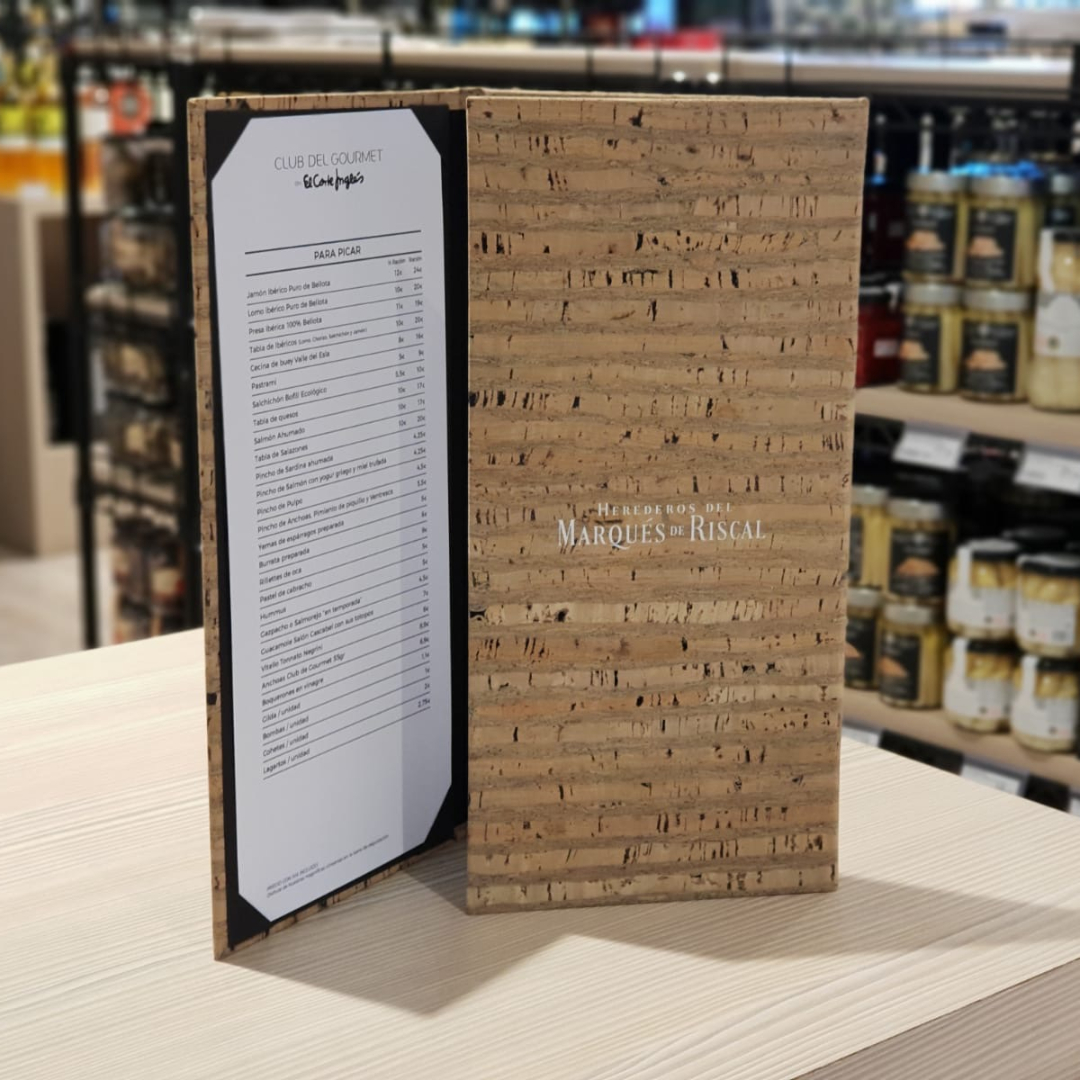 CLUB DEL GOURMET
El Corte Inglés
PARA PICAR
½ Ración Ración
Jamón Ibérico Puro de Bellota 12€ 24€
Lomo Ibérico Puro de Bellota 10€ 20€
Presa Ibérica 100% Bellota 11€ 19€
Tabla de Ibéricos (Lomo, Chorizo, Salchichón y Jamón) 10€ 20€
Cecina de buey Valle del Esla 8€ 16€
Pastrami 5€ 9€
Salchichón Bofill Ecológico 5,5€ 10€
Tabla de quesos 10€ 17€
Salmón Ahumado 10€ 17€
Tabla de Salazones 10€ 20€
Pincho de Sardina ahumada 4,25€
Pincho de Salmón con yogur griego y miel trufada 4,25€
Pincho de Pulpo 4,5€
Pincho de Anchoas, Pimiento de piquillo y Ventresca 5,5€
Yemas de espárragos preparada
Burrata preparada
Rillettes de oca
Pastel de cabracho
Hummus
Gazpacho o Salmorejo "en temporada" 4,5€
Guacamole Salón Cascabel con sus totopos 7€
Vitello Tonnato Negrini
Anchoas Club de Gourmet 55gr
Boquerones en vinagre
Gilda / unidad
Bombas / unidad
Cohetes / unidad 2€
Lagartos / unidad 2,75€
PRECIO CON IVA INCLUIDO
HEREDEROS DEL
MARQUÉS DE RISCAL